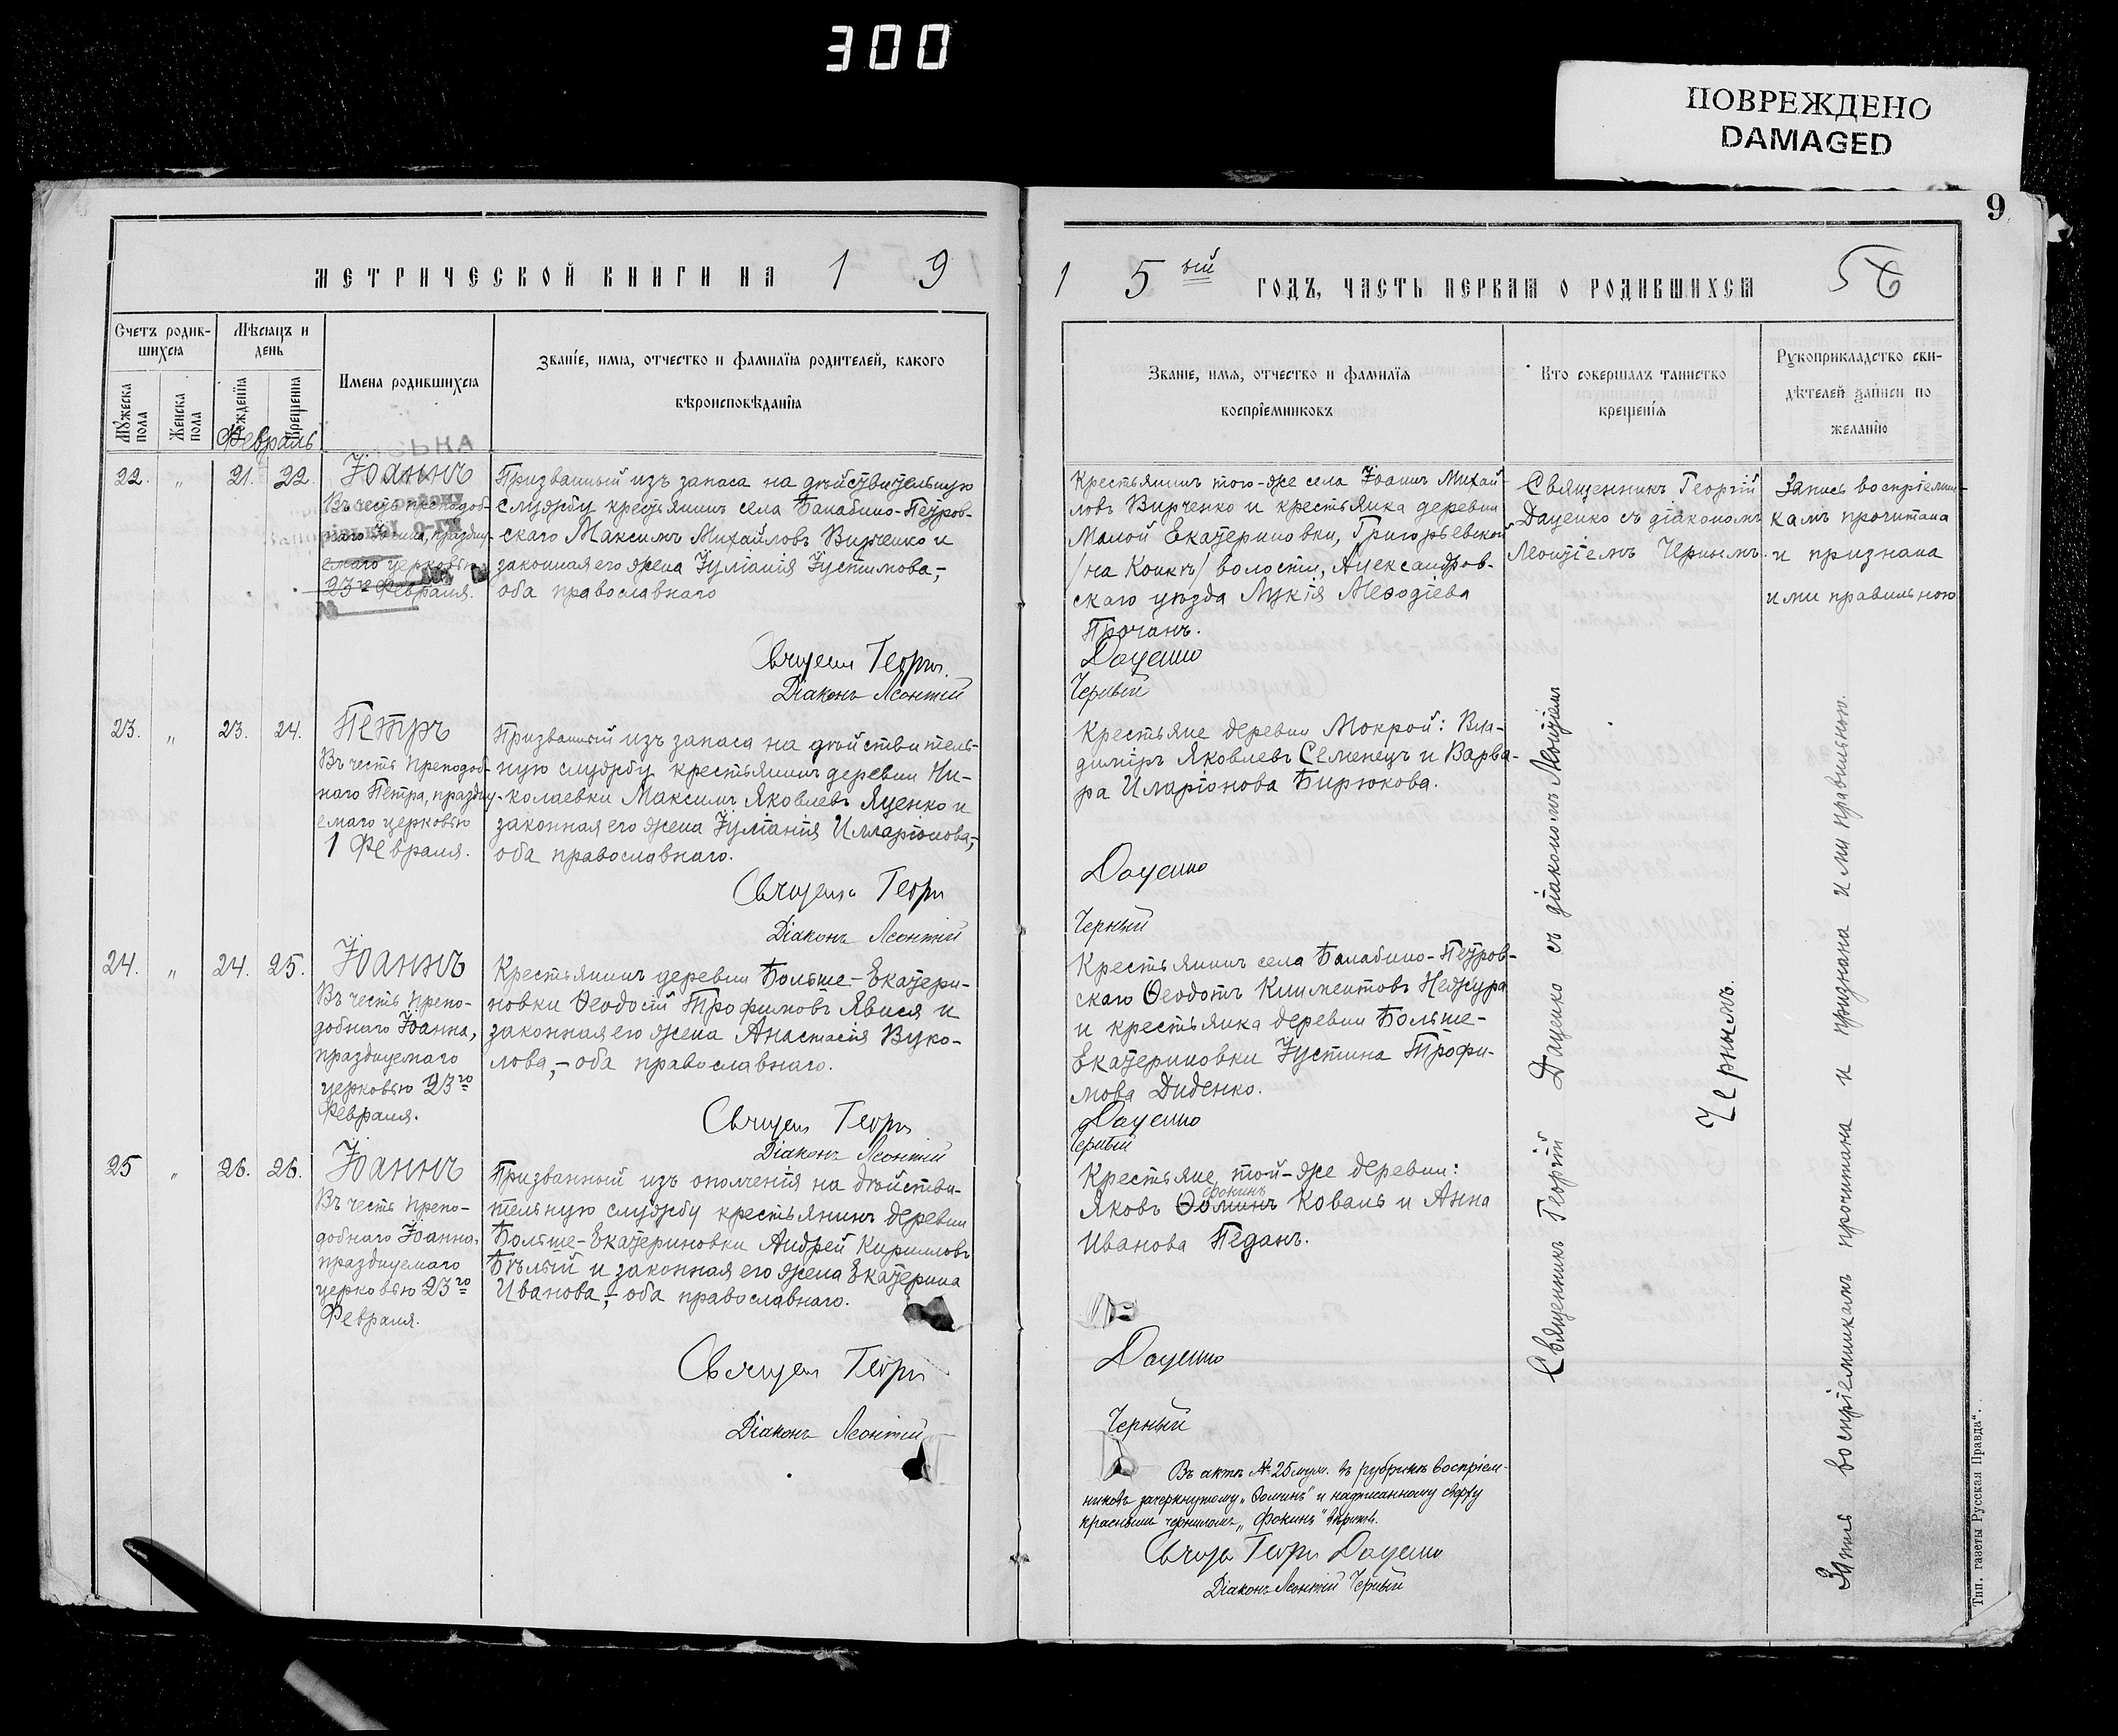 300
ПОВРЕЖДЕНО
DAMAGED
9
МЕТРИЧЕСКОЙ КНИГИ НА 1 9
1 5 ый ГОДЪ, ЧАСТЬ ПЕРВАЯ О РОДИВШИХСЯ 56
Счетъ родив-
шихся
Мѣсяцъ и
день
Мужеска пола
Женска пола
Рожденія
Крещенія
Имена родившихся
Званіе, имя, отчество и фамилія родителей, какого
вѣроисповѣданія
Званіе, имя, отчество и фамилія
воспріемниковъ
Кто совершалъ таинство
крещенія
Рукоприкладство сви-
дѣтелей записи по
желанію
Февраль
22. " 21. 22
Іоаннъ
Въ честь преподоб-
наго Іоанна, праздну-
емаго церковью
23го Февраля.
Призванный изъ запаса на дѣйствительную
службу крестьянинъ села Балабино-Петров-
скаго Максимъ Михайловъ Вирченко и
законная его жена Іуліанія Іустинова,-
оба православнаго
Священ Георги
Діаконъ Леонтій
Крестьянинъ того-же села Іоаннъ Михай-
ловъ Вирченко и крестьянка деревни
Малой Екатериновки, Григорьевской
/на Конкѣ/ волости, Александров-
скаго уѣзда Лукія Меѳодіева
Прочанъ.
Даценко
Черный
Священникъ Георгій
Даценко съ діакономъ
Леонтіемъ Чернымъ.
Запись воспріемни-
камъ прочитана
и признана
ими правильною
23. " 23. 24.
Петръ
Въ честь Преподоб-
наго Петра, праздну-
емаго церковью
1 Февраля.
Призванный изъ запаса на дѣйствитель-
ную службу крестьянинъ деревни Ни-
колаевки Максимъ Яковлевъ Яценко и
законная его жена Іуліанія Илларіонова,-
оба православнаго.
Священ Георги
Діаконъ Леонтій
Крестьяне деревни Мокрой: Вла-
диміръ Яковлевъ Семенецъ и Варва-
ра Иларіонова Бирюкова.
Даценко
Черный
24. " 24. 25.
Іоаннъ
Въ честь Препо-
добнаго Іоанна,
празднуемаго
церковью 23го
Февраля.
Крестьянинъ деревни Больше-Екатери-
новки Ѳеодосій Трофимовъ Явися и
законная его жена Анастасія Вуко-
лова,- оба православнаго.
Священ Георги
Діаконъ Леонтій
Крестьянинъ села Балабино-Петров-
скаго Ѳеодотъ Климентовъ Неджура
и крестьянка деревни Больше-
Екатериновки Іустина Трофи-
мова Диденко.
Даценко
Черный
25 " 26. 26.
Іоаннъ
Въ честь Препо-
добнаго Іоанна,
празднуемаго
церковью 23го
Февраля.
Призванный изъ ополченія на дѣйстви-
тельную службу крестьянинъ деревни
Больше-Екатериновки Андрей Кирилловъ
Бѣлый и законная его жена Екатерина
Иванова,- оба православнаго.
Священ Георги
Діаконъ Леонтій
Крестьяне той-же деревни:
Фокинъ
Яковъ Ѳоминъ Коваль и Анна
Иванова Педанъ.
Даценко
Черный
Священникъ Георгій Даценко съ діакономъ Леонтіемъ
Чернымъ.
Запись воспріемникамъ прочитана и признана ими правильною.
Въ актѣ № 25 муж. въ рубрикѣ воспріем-
никовъ зачеркнутому „Ѳоминъ" и надписанному сверху
красными чернилами „Фокинъ" вѣрить.
Священ Георги Даценко
Діаконъ Леонтій Черный
Тип. газеты Русская Правда".